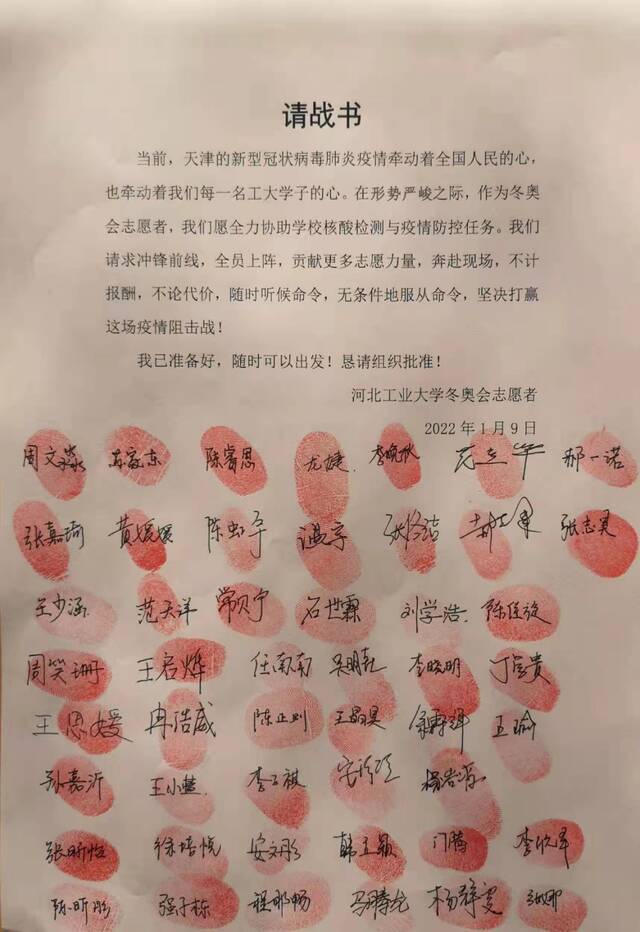 请战书
当前，天津的新型冠状病毒肺炎疫情牵动着全国人民的心，
也牵动着我们每一名工大学子的心。在形势严峻之际，作为冬奥
会志愿者，我们愿全力协助学校核酸检测与疫情防控任务。我们
请求冲锋前线，全员上阵，贡献更多志愿力量，奔赴现场，不计
报酬，不论代价，随时听候命令，无条件地服从命令，坚决打赢
这场疫情阻击战！
我已准备好，随时可以出发！恳请组织批准！
河北工业大学冬奥会志愿者
2022 年 1 月 9 日
周文淼 苏家东 陈睿思 尤婕 李晚秋 郝一诺
张嘉琦 黄媛媛 温宇 张志灵
王少涵 范天洋 常贝宁 石世霖 刘学浩
周笑珊 王启烨 任南南 李晓明 丁宝贵
王恩媛 冉浩威 陈正则 王瑜
孙嘉沂 王小慧
张昕怡 徐培悦 安文彤 韩玉颖 门腾 李欣洋
陈昕彤 强子栋 程郡畅 马腾龙 张娜